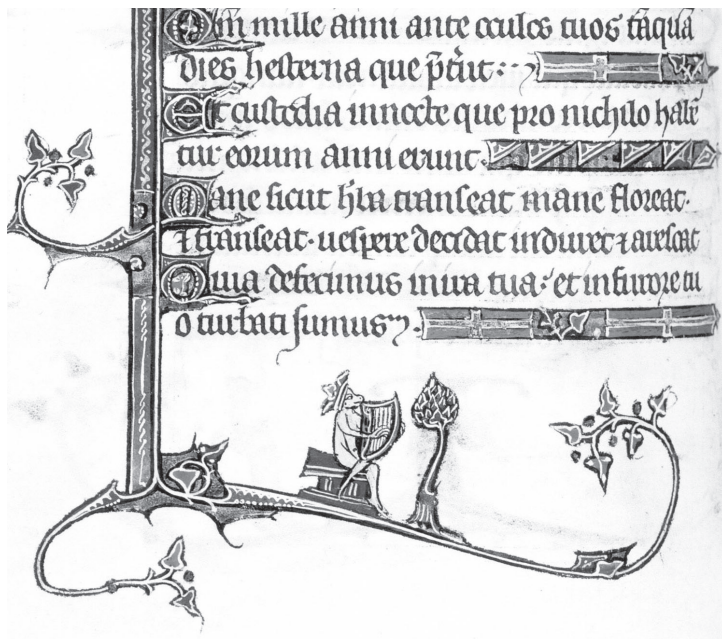 Qm̄ mille anni ante oculos tuos tāqua
dies hesterna que p̄t̄iit:
Et custodia in nocte que pro nichilo habē
tur eorum anni erunt.
Mane sicut h̄ba transeat mane floreat.
⁊ transeat. uespere decidat induret ⁊ arescat
Quia defecimus in ira tua: et in furore tu
o turbati sumus.